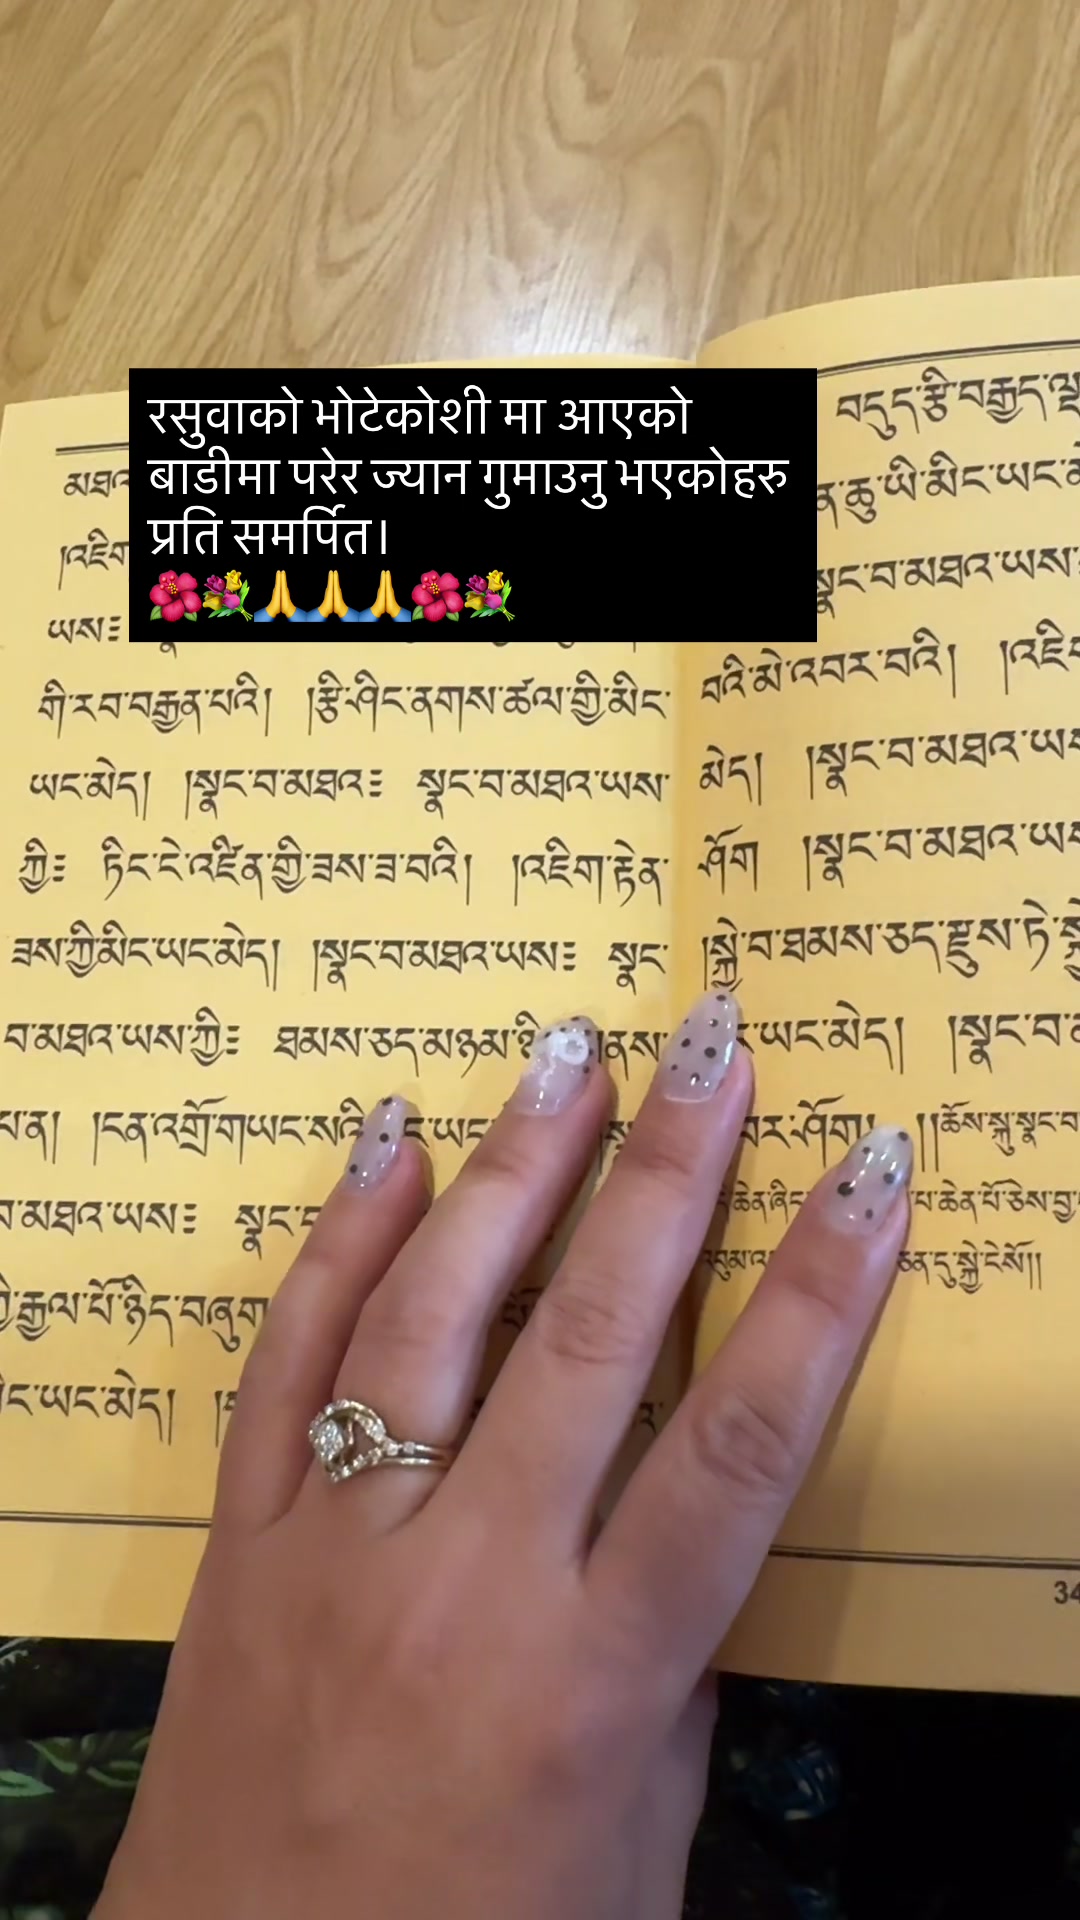 रसुवाको भोटेकोशी मा आएको
बाडीमा परेर ज्यान गुमाउनु भएकोहरु
प्रति समर्पित।
🌺💐🙏🙏🙏🌺💐
མཐའ
།འཇིག
ཡས༔
གི་རབ་བརྒྱན་པའི། །རྩི་ཤིང་ནགས་ཚལ་གྱི་མིང་
ཡང་མེད། །སྣང་བ་མཐའ༔ སྣང་བ་མཐའ་ཡས་
ཀྱི༔ ཏིང་ངེ་འཛིན་གྱི་ཟས་ཟ་བའི། །འཇིག་རྟེན་
ཟས་ཀྱི་མིང་ཡང་མེད། །སྣང་བ་མཐའ་ཡས༔ སྣང་
བ་མཐའ་ཡས་ཀྱི༔ ཐམས་ཅད་མཉམ་
།ངན་འགྲོ་གཡང་སའི
བ་མཐའ་ཡས༔ སྣང་
རྒྱལ་པོ་ཉིད་བཞུག
ཡང་མེད།
བདུད་རྩི་བརྒྱད་
ཆུ་ཡི་མིང་ཡང་
སྣང་བ་མཐའ་ཡས་
བའི་མེ་འབར་བའི། །འཇིག
མེད། །སྣང་བ་མཐའ་ཡས
ཤོག །སྣང་བ་མཐའ་ཡས
།སྐྱེ་བ་ཐམས་ཅད་རྫུས་ཏེ་སྐྱེ
ཡང་མེད། །སྣང་བ་
བར་ཤོག། །།ཆོས་སྐུ་སྣང་བ
ཆེན་ཞིང པ་ཆེན་པོ་ཅེས་བྱ
འབུམ་ ཅན་དུ་སྐྱེ་ངེས་སོ།།
34